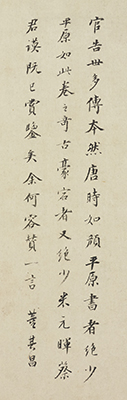 官告世多傳本然唐時如顏平原書者絕少
平原如此卷之奇古豪宕者又絕少米元暉蔡
君謨既已賞鑒矣余何容贊一言 董其昌